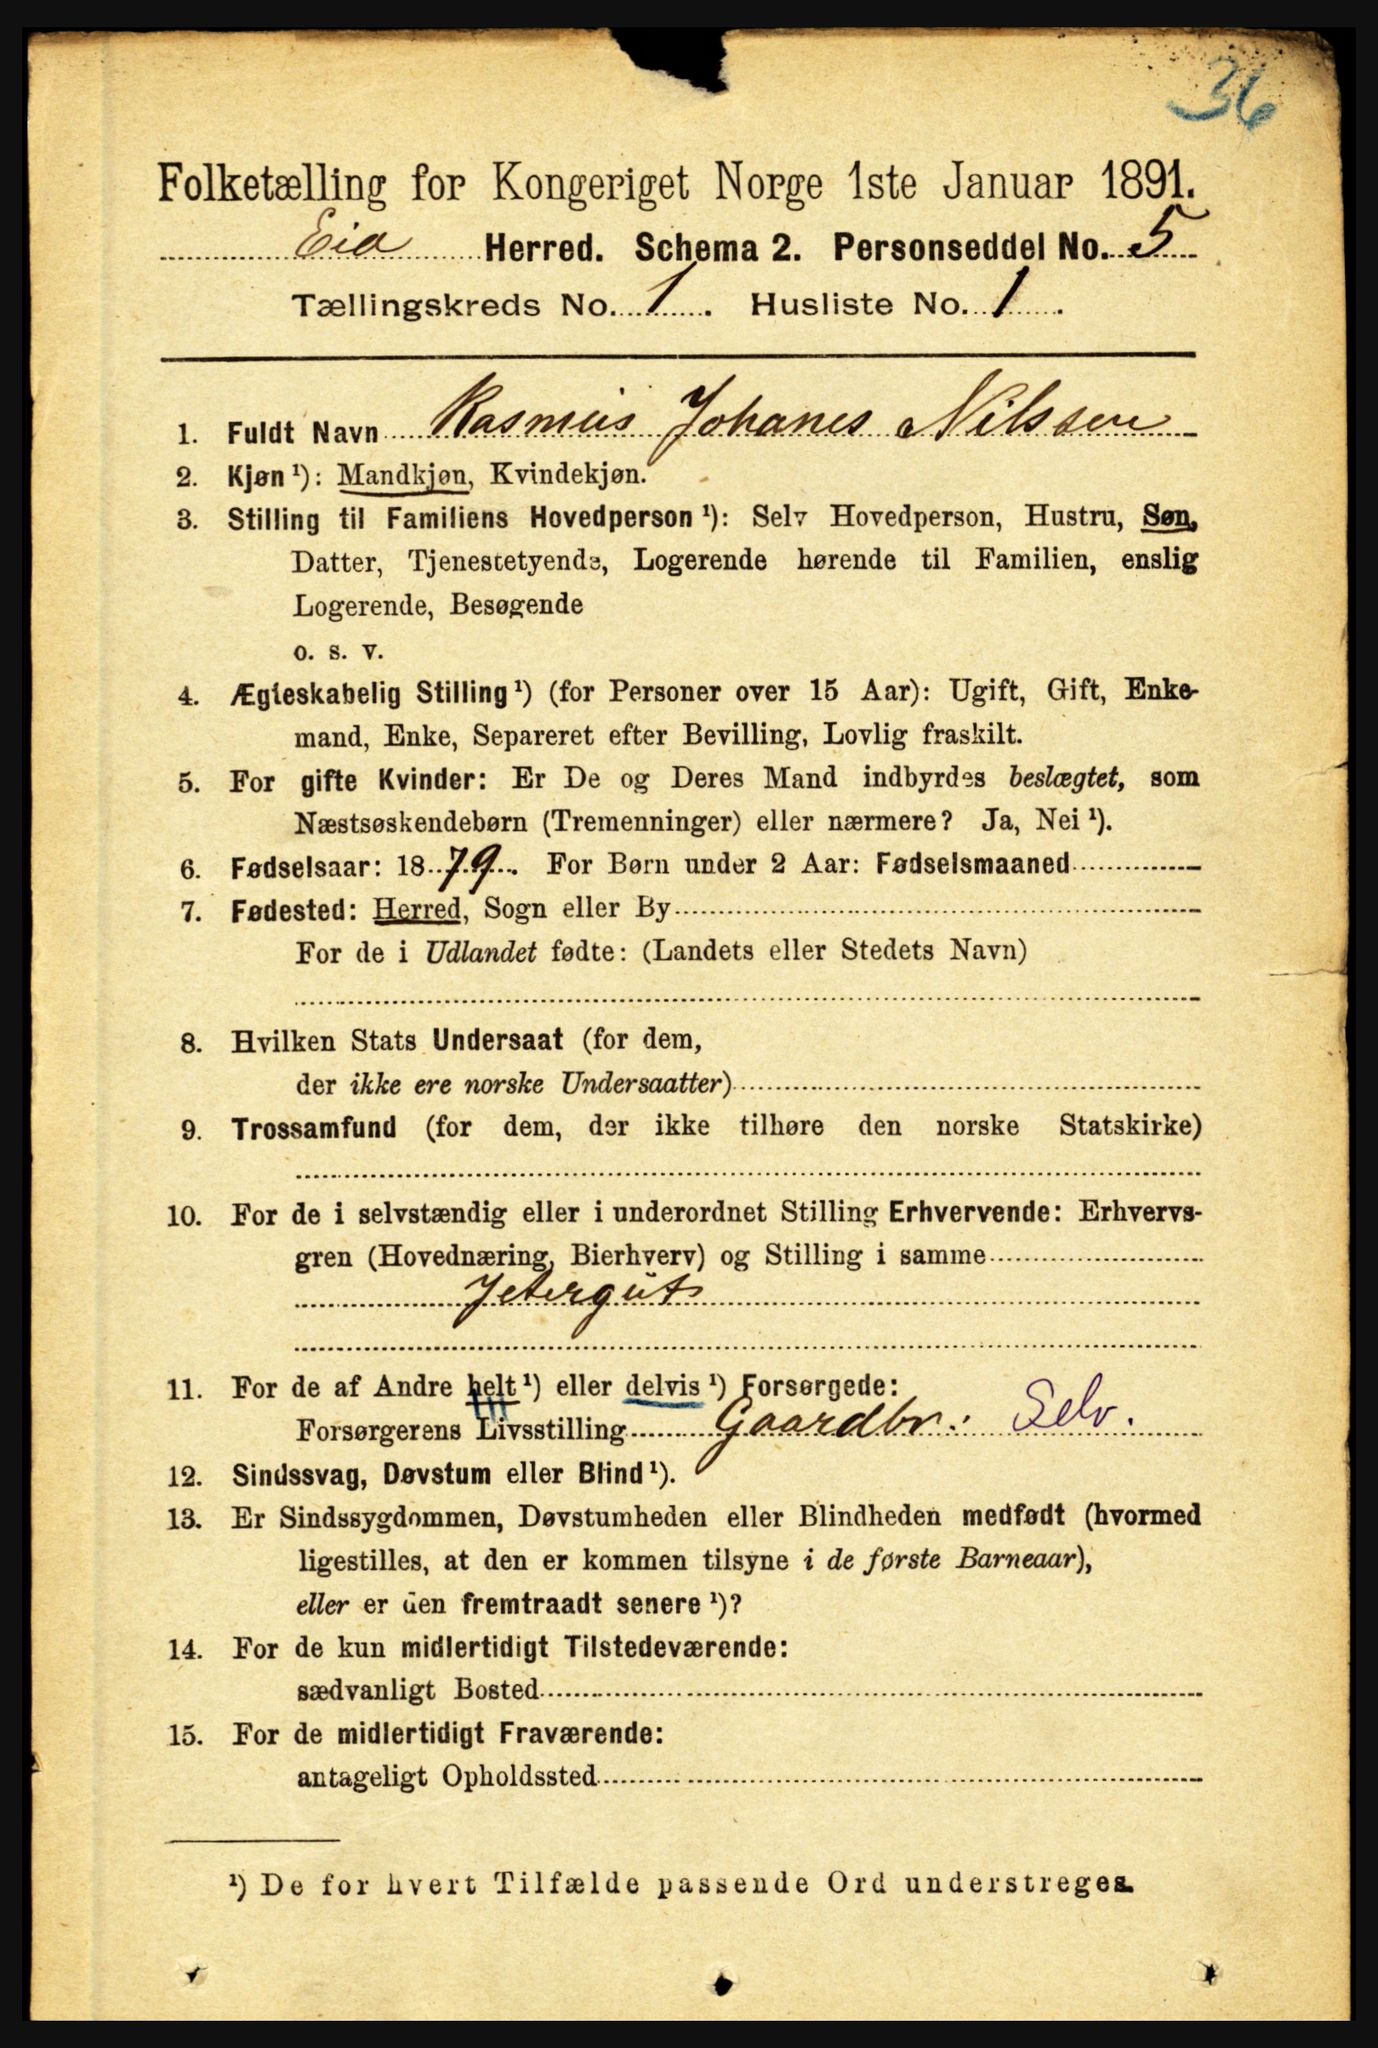 36
Folketælling for Kongeriget Norge 1ste Januar 1891.
Eid Herred. Schema 2. Personseddel No. 5
Tællingskreds No. 1. Husliste No. 1.
1. Fuldt Navn Rasmus Johanes Nilssen
2. Kjøn ¹): Mandkjøn, Kvindekjøn.
3. Stilling til Familiens Hovedperson ¹): Selv Hovedperson, Hustru, Søn,
Datter, Tjenestetyende, Logerende hørende til Familien, enslig
Logerende, Besøgende
o. s. v.
4. Ægteskabelig Stilling ¹) (for Personer over 15 Aar): Ugift, Gift, Enke-
mand, Enke, Separeret efter Bevilling, Lovlig fraskilt.
5. For gifte Kvinder: Er De og Deres Mand indbyrdes beslægtet, som
Næstsøskendebørn (Tremenninger) eller nærmere? Ja, Nei ¹).
6. Fødselsaar: 1879. For Børn under 2 Aar: Fødselsmaaned
7. Fødested: Herred, Sogn eller By
For de i Udlandet fødte: (Landets eller Stedets Navn)
8. Hvilken Stats Undersaat (for dem,
der ikke ere norske Undersaatter)
9. Trossamfund (for dem, der ikke tilhøre den norske Statskirke)
10. For de i selvstændig eller i underordnet Stilling Erhvervende: Erhvervs-
gren (Hovednæring, Bierhverv) og Stilling i samme
Jetergut
11. For de af Andre helt ¹) eller delvis ¹) Forsørgede:
Forsørgerens Livsstilling Gaardbr. Selv.
12. Sindssvag, Døvstum eller Blind ¹).
13. Er Sindssygdommen, Døvstumheden eller Blindheden medfødt (hvormed
ligestilles, at den er kommen tilsyne i de første Barneaar),
eller er den fremtraadt senere ¹)?
14. For de kun midlertidigt Tilstedeværende:
sædvanligt Bosted
15. For de midlertidigt Fraværende:
antageligt Opholdssted
¹) De for hvert Tilfælde passende Ord understreges.